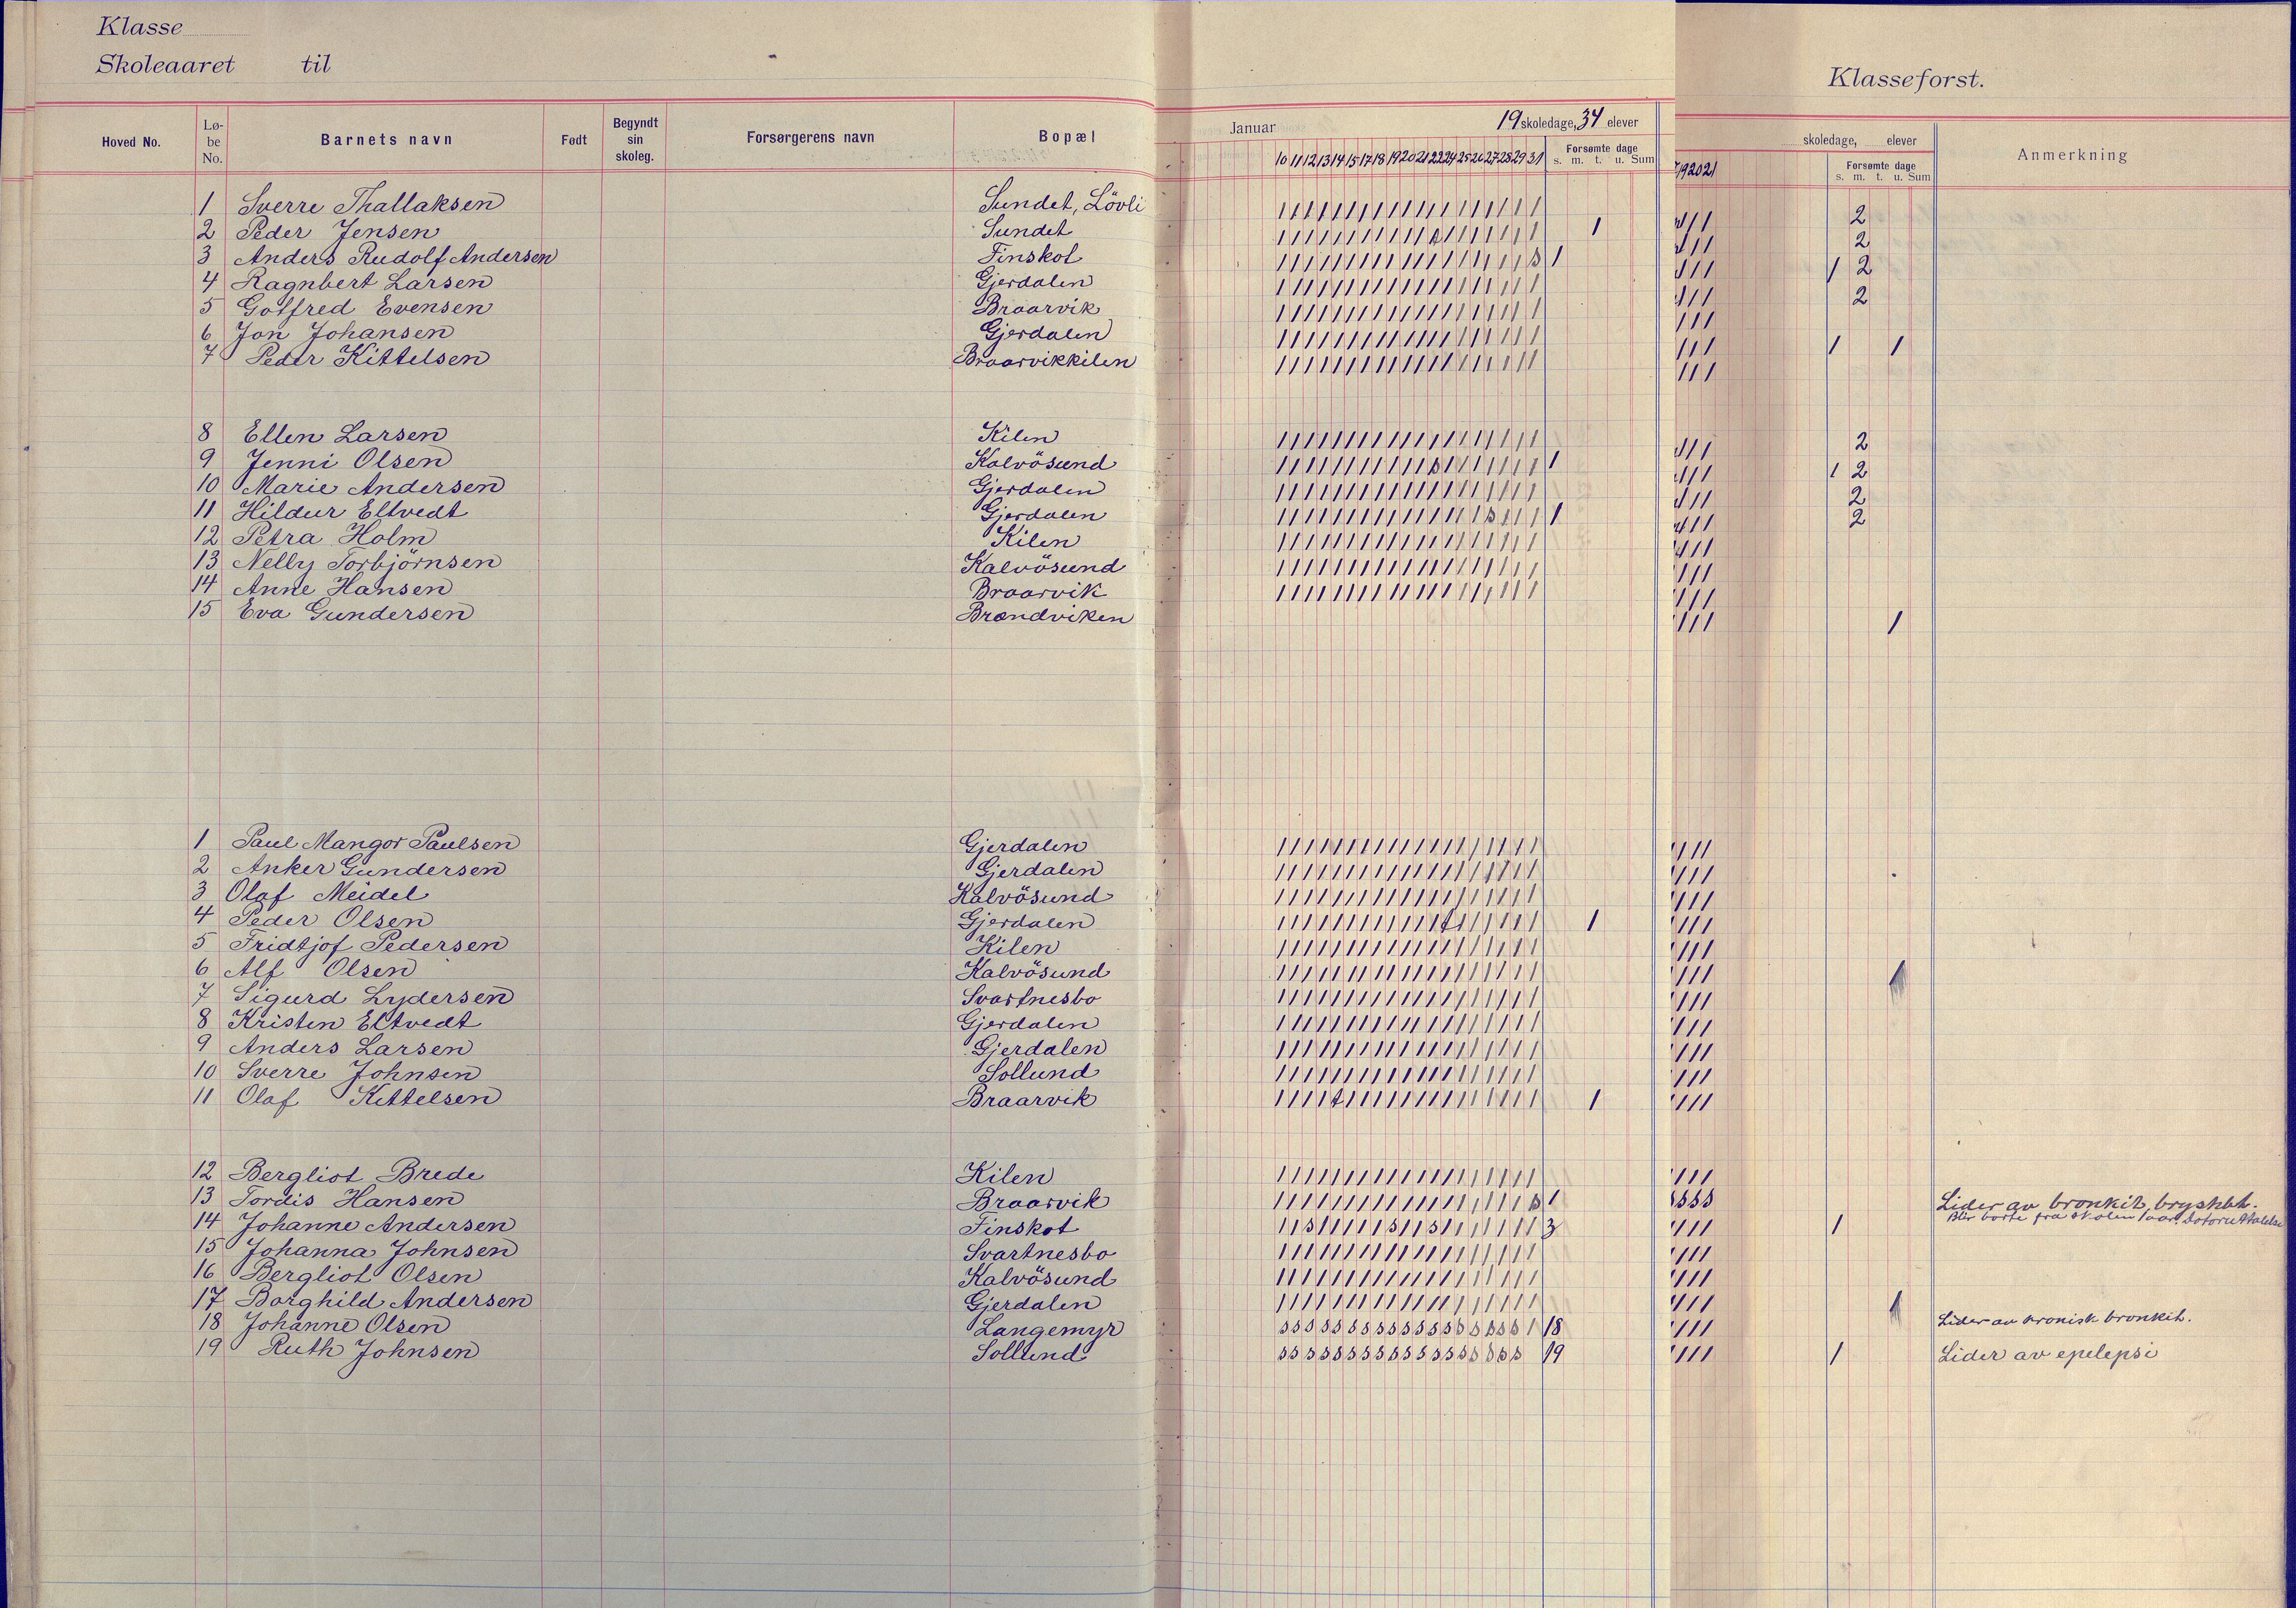 Klasse
Skoleaaret til
Klasseforst.
Hoved No. Lø-be No. Barnets navn Født Begyndt sin skoleg. Forsørgerens navn Bopæl Januar 19 skoledage, 34 elever skoledage, elever Anmerkning
10 11 12 13 14 15 17 18 19 20 21 22 24 25 26 27 28 29 31 Forsømte dage s. m. t. u. Sum 19 20 21 Forsømte dage s. m. t. u. Sum
1 Sverre Thallaksen Sundet, Lövli 2
2 Peder Jensen Sundet 1 2
3 Anders Rudolf Andersen Finskot 1 1 2
4 Ragnbert Larsen Gjerdalen 2
5 Gotfred Evensen Braarvik
6 Jon Johansen Gjerdalen 1 1
7 Peder Kittelsen Braarvikkilen
8 Ellen Larsen Kilen 2
9 Jenni Olsen Kalvösund 1 1 2
10 Marie Andersen Gjerdalen 2
11 Hildur Eltvedt Gjerdalen 1 2
12 Petra Holm Kilen
13 Nelly Torbjörnsen Kalvösund
14 Anne Hansen Braarvik
15 Eva Gundersen Brændviken 1
1 Paul Mangor Paulsen Gjerdalen
2 Anker Gundersen Gjerdalen
3 Olaf Meidel Kalvösund
4 Peder Olsen Gjerdalen 1
5 Fridtjof Pedersen Kilen
6 Alf Olsen Kalvösund
7 Sigurd Lydersen Svartnesbo
8 Kristen Eltvedt Gjerdalen
9 Anders Larsen Gjerdalen
10 Sverre Johnsen Sollund
11 Olaf Kittelsen Braarvik 1
12 Bergliot Brede Kilen
13 Tordis Hansen Braarvik 1 s s s s Lider av bronkit,
Blir borte fra skolen
14 Johanne Andersen Finskot 3 1
15 Johanna Johnsen Svartnesbo
16 Bergliot Olsen Kalvösund
17 Borghild Andersen Gjerdalen
18 Johanne Olsen Langemyr s s s s s s s s s s s s s s s s s s 1 18 Lider av kronisk bronkit.
19 Ruth Johnsen Sollund s s s s s s s s s s s s s s s s s s s 19 1 Lider av epelepsi